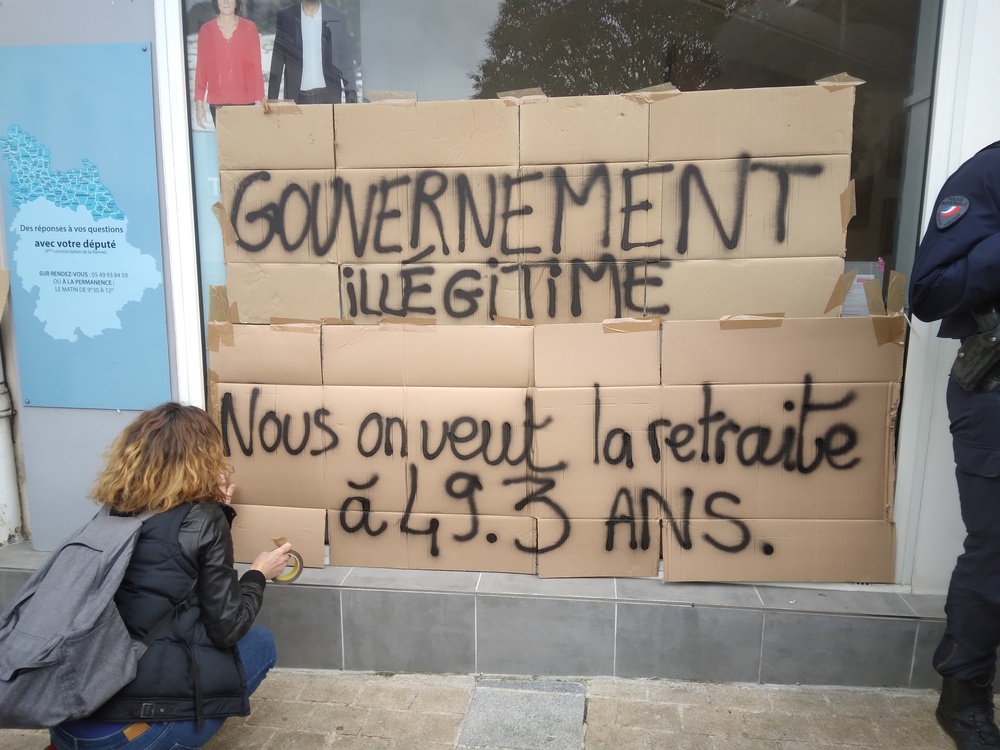 GOUVERNEMENT
ILLÉGITIME
Nous on veut la retraite
à 49.3 ANS.
Des réponses à vos questions
avec votre député
SUR RENDEZ-VOUS : 05 49 93 84 59
OU À LA PERMANENCE :
LE MATIN DE 9H30 À 12H